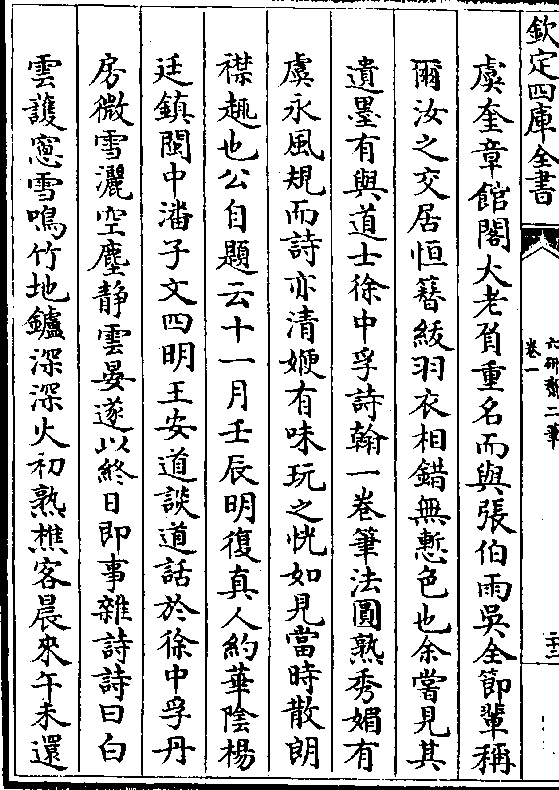 欽定四庫全書
六研齋二筆
卷一
虞奎章館閣大老負重名而與張伯雨吳全節輩稱
爾汝之交居恒簪綬羽衣相錯無慙色也余嘗見其
遺墨有與道士徐中孚詩翰一卷筆法圓熟秀媚有
虞永風規而詩亦清婉有味玩之恍如見當時散朗
襟趣也公自題云十一月壬辰明復真人約華陰楊
廷鎮閩中潘子文四明王安道談道話於徐中孚丹
房微雪灑空塵静雲晏遂以終日即事雜詩詩曰白
雲護窻雪鳴竹地鑪深深火初熟樵客晨來午未還